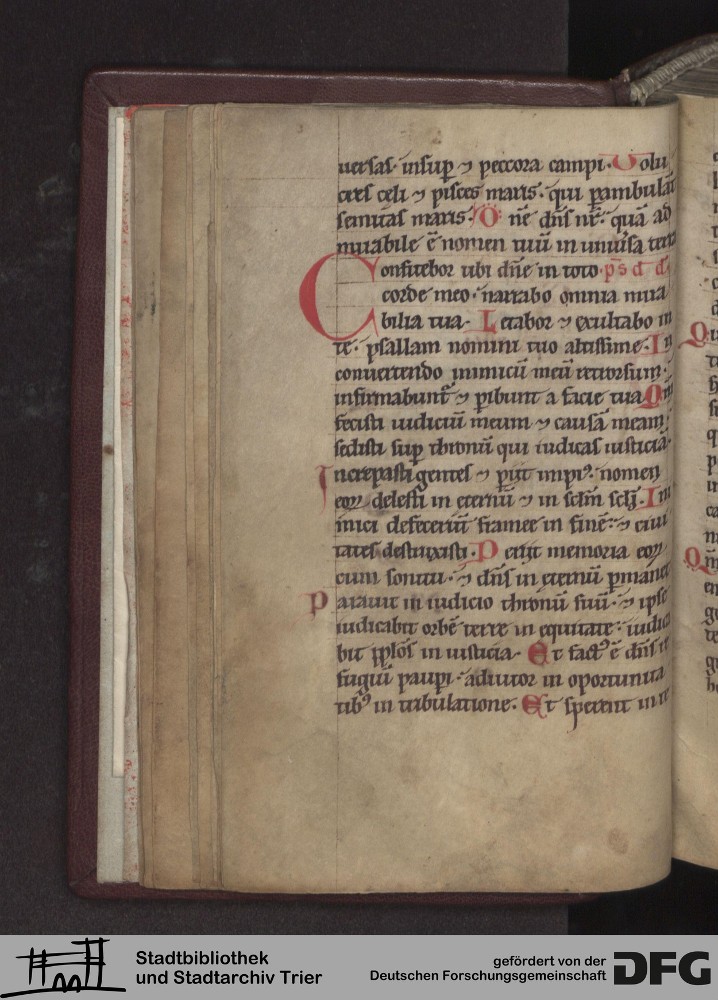 uersas· insup̄ ⁊ peccora campi· Uolu
cres celi ⁊ pisces maris· qui ꝑambulāt
semitas maris· O· ne dn̄s nr̄· quā ad
mirabile ē nomen tuū in uniu͛sa terra
Confitebor tibi dn̄e in toto p̄s d d̄
corde meo· narrabo omnia mira
bilia tua· Letabor ⁊ exultabo in
te· psallam nomini tuo altissime· In
conuertendo inimicū meū retrorsum·
infirmabunt᷑ ⁊ ꝑibunt a facie tua Qm̄
fecisti iudiciū meum ⁊ causā meam·
sedisti sup̄ thronū qui iudicas iusticiā·
Increpasti gentes ⁊ ꝑiit impiꝰ· nomen
eoꝝ delesti in eternū ⁊ in sclm̄ scłi· In
imici defecerūt framee in finē· ⁊ ciui
tates destruxisti· Periit memoria eoꝝ
cum sonitu· ⁊ dn̄s in eternū ꝑmanet
Parauit in iudicio thronū suū· ⁊ ipse
iudicabit orbē terre in equitate· iudica
bit pp̄los in iusticia· Et factꝰ ē dn̄s re
fugiū pauꝑi· adiutor in oportunita
tibꝰ in tribulatione· Et sperent in te
Stadtbibliothek
und Stadtarchiv Trier
gefördert von der
Deutschen Forschungsgemeinschaft
DFG